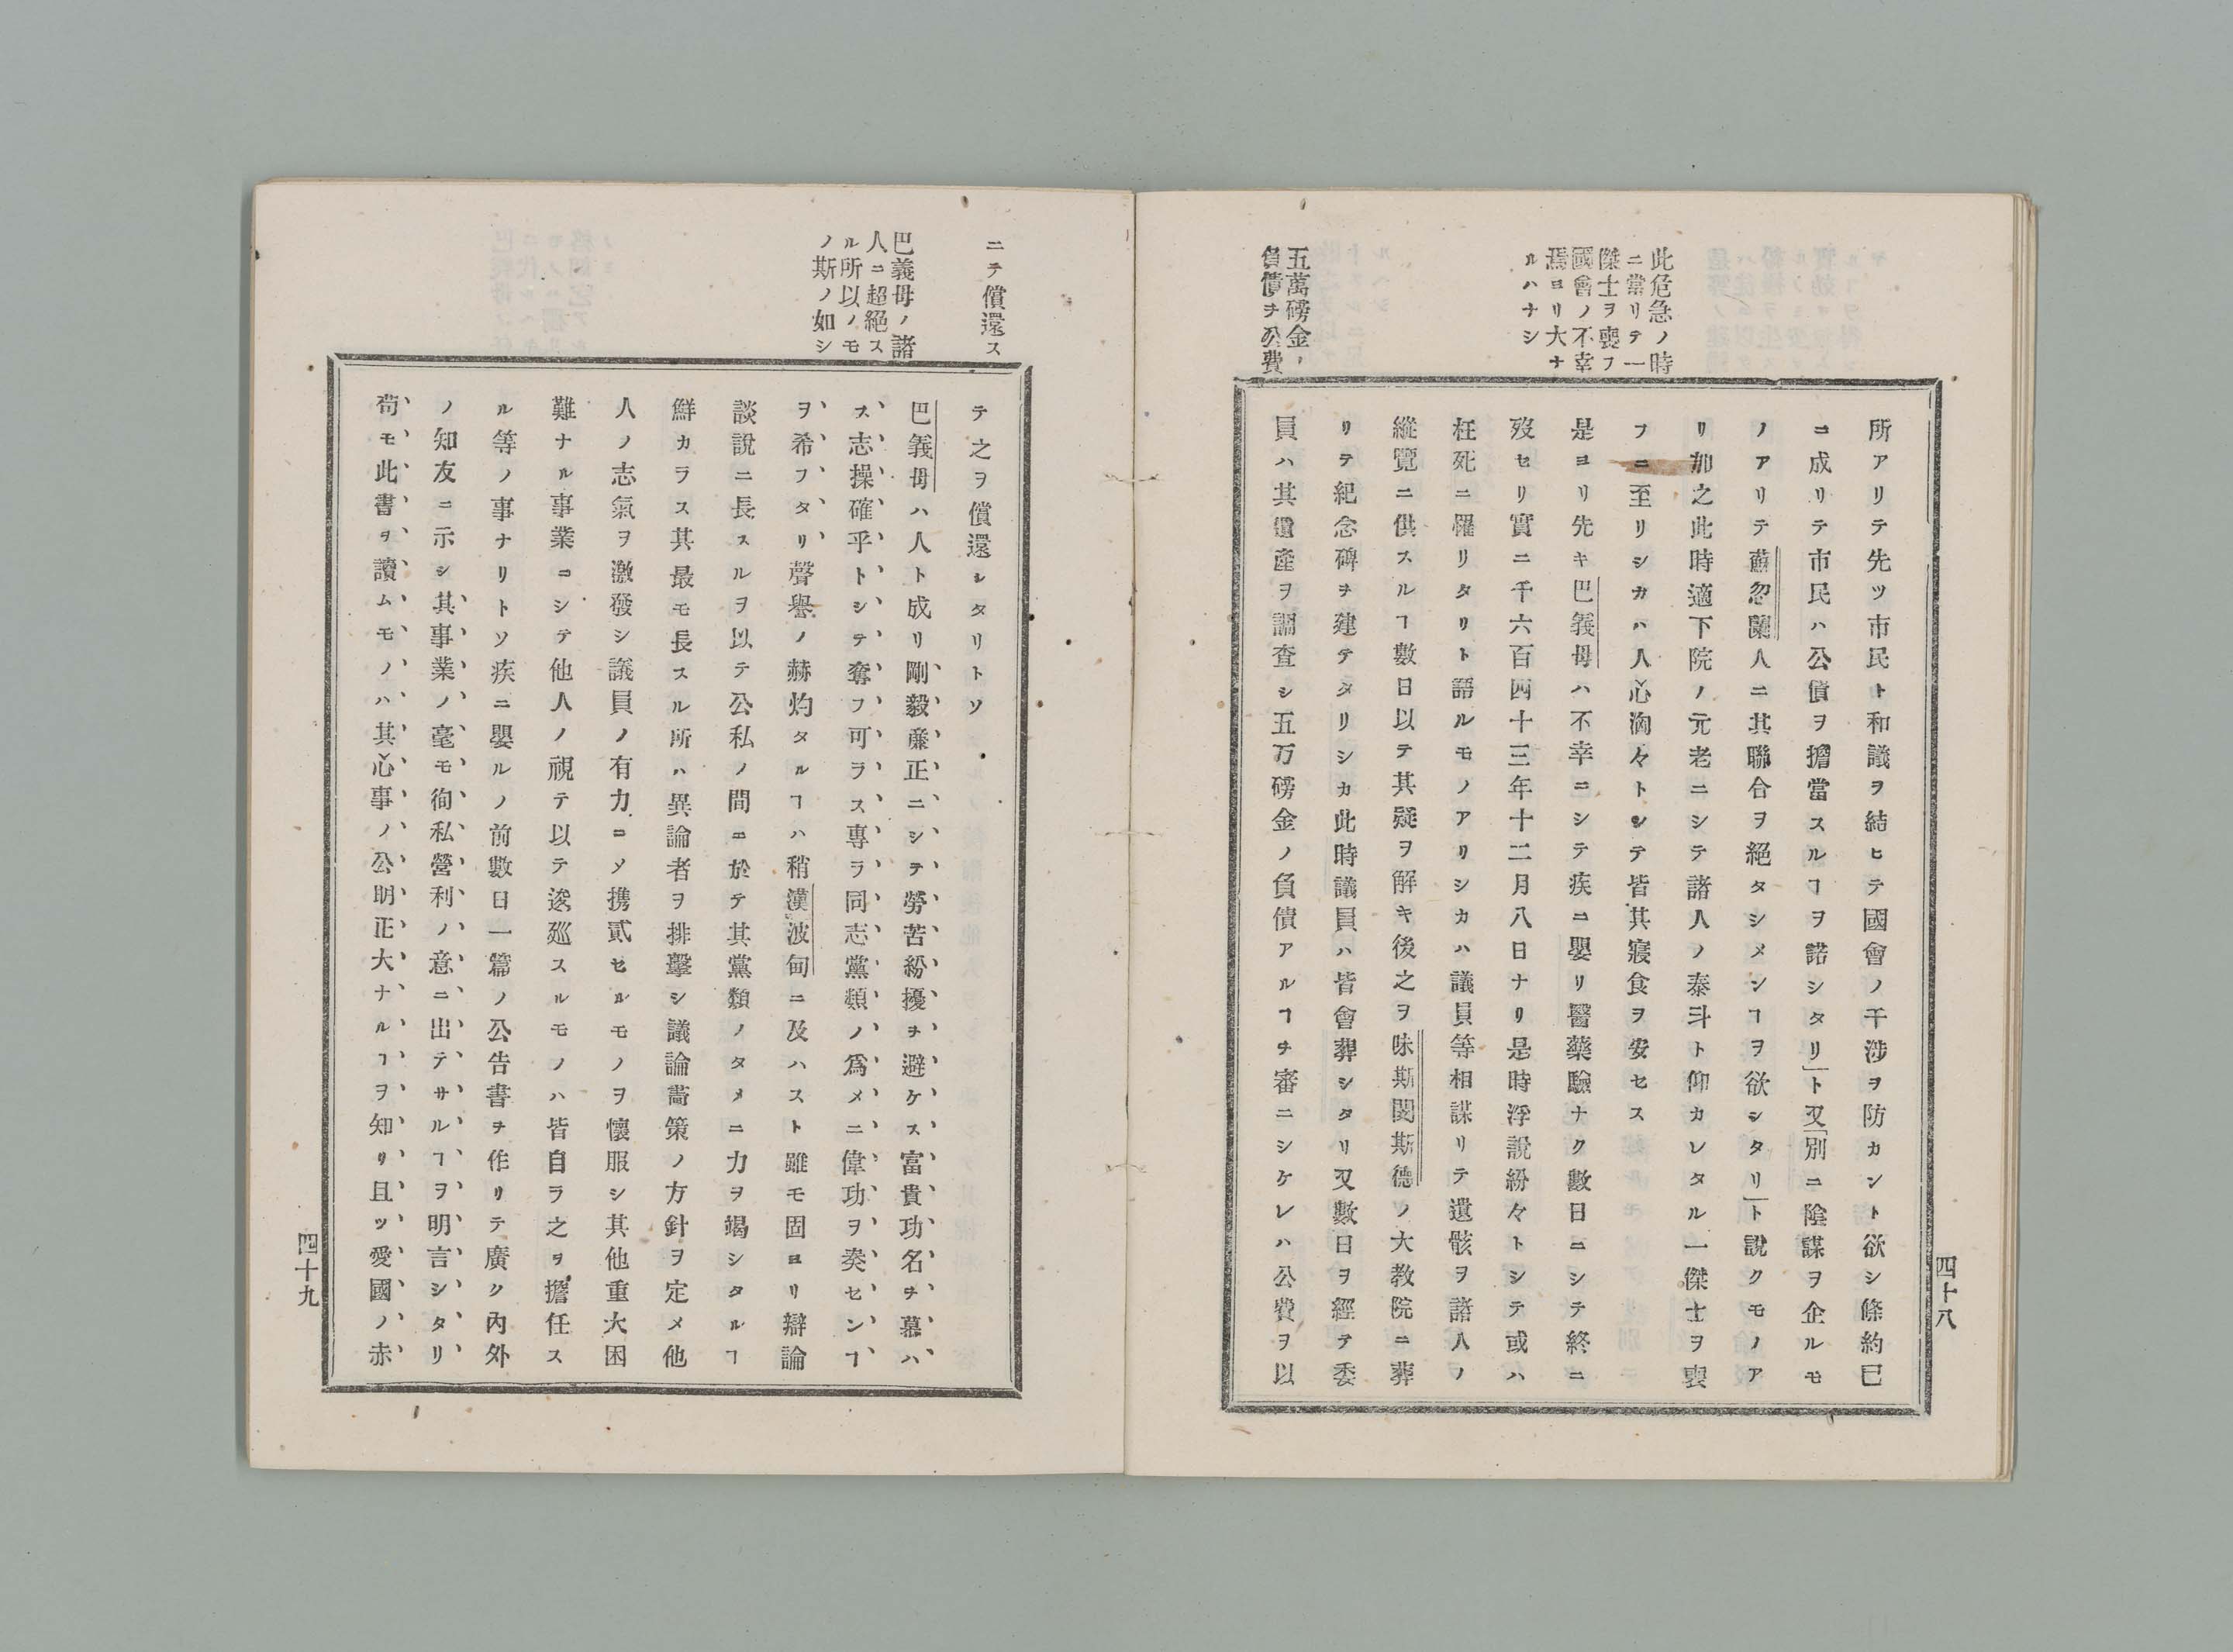 此危急ノ時
ニ當リテ一
傑士ヲ喪フ
國會ノ不幸
焉ヨリ大ナ
ルハナシ
五萬磅金ノ
負債ヲ公費
所アリテ先ツ市民ト和議ヲ結ヒテ國會ノ干渉ヲ防カント欲シ條約已
ニ成リテ市民ハ公債ヲ擔當スルヿヲ諾シタリ」ト又「別ニ陰謀ヲ企ルモ
ノアリテ蘓忽蘭人ニ其聯合ヲ絕タシメンヿヲ欲シタリ」ト說クモノア
リ加之此時適下院ノ元老ニシテ諸人ノ泰斗ト仰カレタル一傑士ヲ喪
フニ至リシカハ人心洶々トシテ皆其寢食ヲ安セス
是ヨリ先キ巴義母ハ不幸ニシテ疾ニ嬰リ醫藥驗ナク數日ニシテ終ニ
歿セリ實ニ千六百四十三年十二月八日ナリ是時浮說紛々トシテ或ハ
枉死ニ罹リタリト語ルモノアリシカハ議員等相謀リテ遺骸ヲ諸人ノ
縱覽ニ供スルヿ數日以テ其疑ヲ解キ後之ヲ味斯閔斯德ノ大教院ニ葬
リテ紀念碑ヲ建テタリシカ此時議員ハ皆會葬シタリ又數日ヲ經テ委
員ハ其遺產ヲ調査シ五万磅金ノ負債アルヿヲ審ニシケレハ公費ヲ以
四十八
ニテ償還ス
巴義母ノ諸
人ニ超絕ス
ル所以ノモ
ノ斯ノ如シ
テ之ヲ償還シタリトソ
巴義母ハ人ト成リ剛毅廉正ニシテ勞苦紛擾ヲ避ケス富貴功名ヲ慕ハ
ス志操確乎トシテ奪フ可ラス專ラ同志黨類ノ爲メニ偉功ヲ奏センヿ
ヲ希フタリ聲譽ノ赫灼タルヿハ稍漢波甸ニ及ハスト雖モ固ヨリ辯論
談說ニ長スルヲ以テ公私ノ間ニ於テ其黨類ノタメニ力ヲ竭シタルヿ
鮮カラス其最モ長スル所ハ異論者ヲ排擊シ議論畫策ノ方針ヲ定メ他
人ノ志氣ヲ激發シ議員ノ有力ニメ携貳セルモノヲ懷服シ其他重大困
難ナル事業ニシテ他人ノ視テ以テ逡巡スルモノハ皆自ラ之ヲ擔任ス
ル等ノ事ナリトソ疾ニ嬰ルノ前數日一篇ノ公告書ヲ作リテ廣ク內外
ノ知友ニ示シ其事業ノ毫モ徇私營利ノ意ニ出テサルヿヲ明言シタリ
苟モ此書ヲ讀ムモノハ其心事ノ公明正大ナルヿヲ知リ且ツ愛國ノ赤
四十九